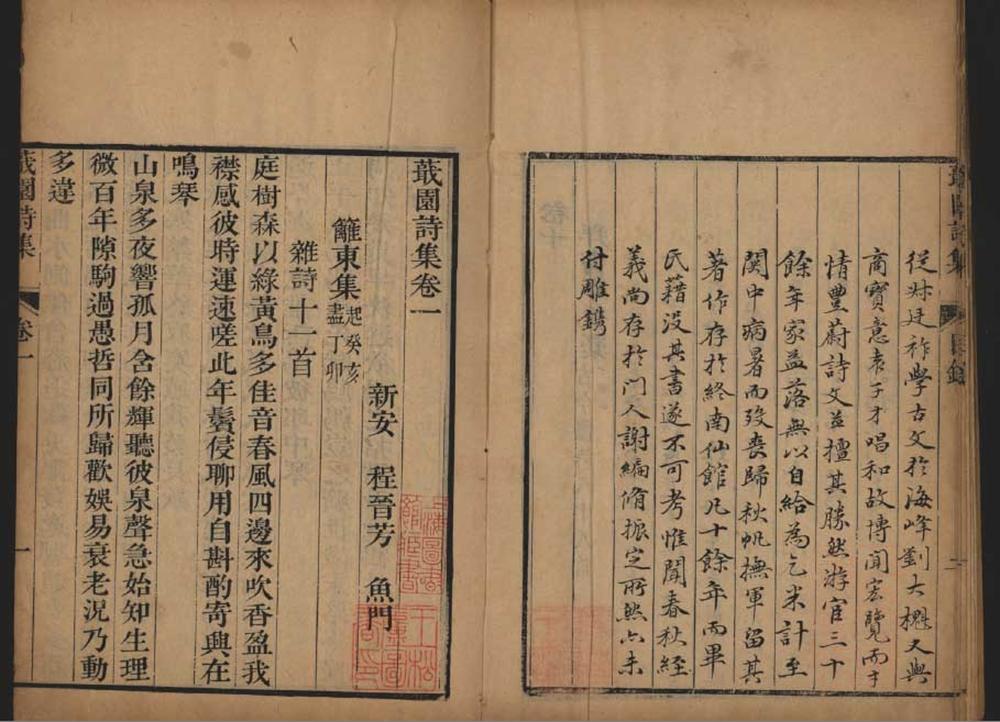 從叔廷祚學古文於海峰劉大櫆又與
商寶意袁子才唱和故博聞宏覽而才
情豐蔚詩文並擅其勝然游宦三十
餘年家益落無以自給為乞米計至
関中病暑而歿喪歸秋帆撫軍留其
著作存於終南仙館凡十餘年而畢
氏藉沒其書遂不可考惟聞春秋經
義尚存於門人謝編脩振定所然亦未
付雕鐫
蕺園詩集 目錄
蕺園詩集卷一
新安 程晉芳 魚門
籬東集起癸亥盡丁卯
雜詩十二首
庭樹森以綠黃鳥多佳音春風四邊來吹香盈我
襟感彼時運速嗟此年鬢侵聊用自斟酌寄興在
鳴琴
山泉多夜響孤月含餘輝聽彼泉聲急始知生理
微百年隙駒過愚哲同所歸歡娛易衰老況乃動
多違
蕺園詩集 卷一 一